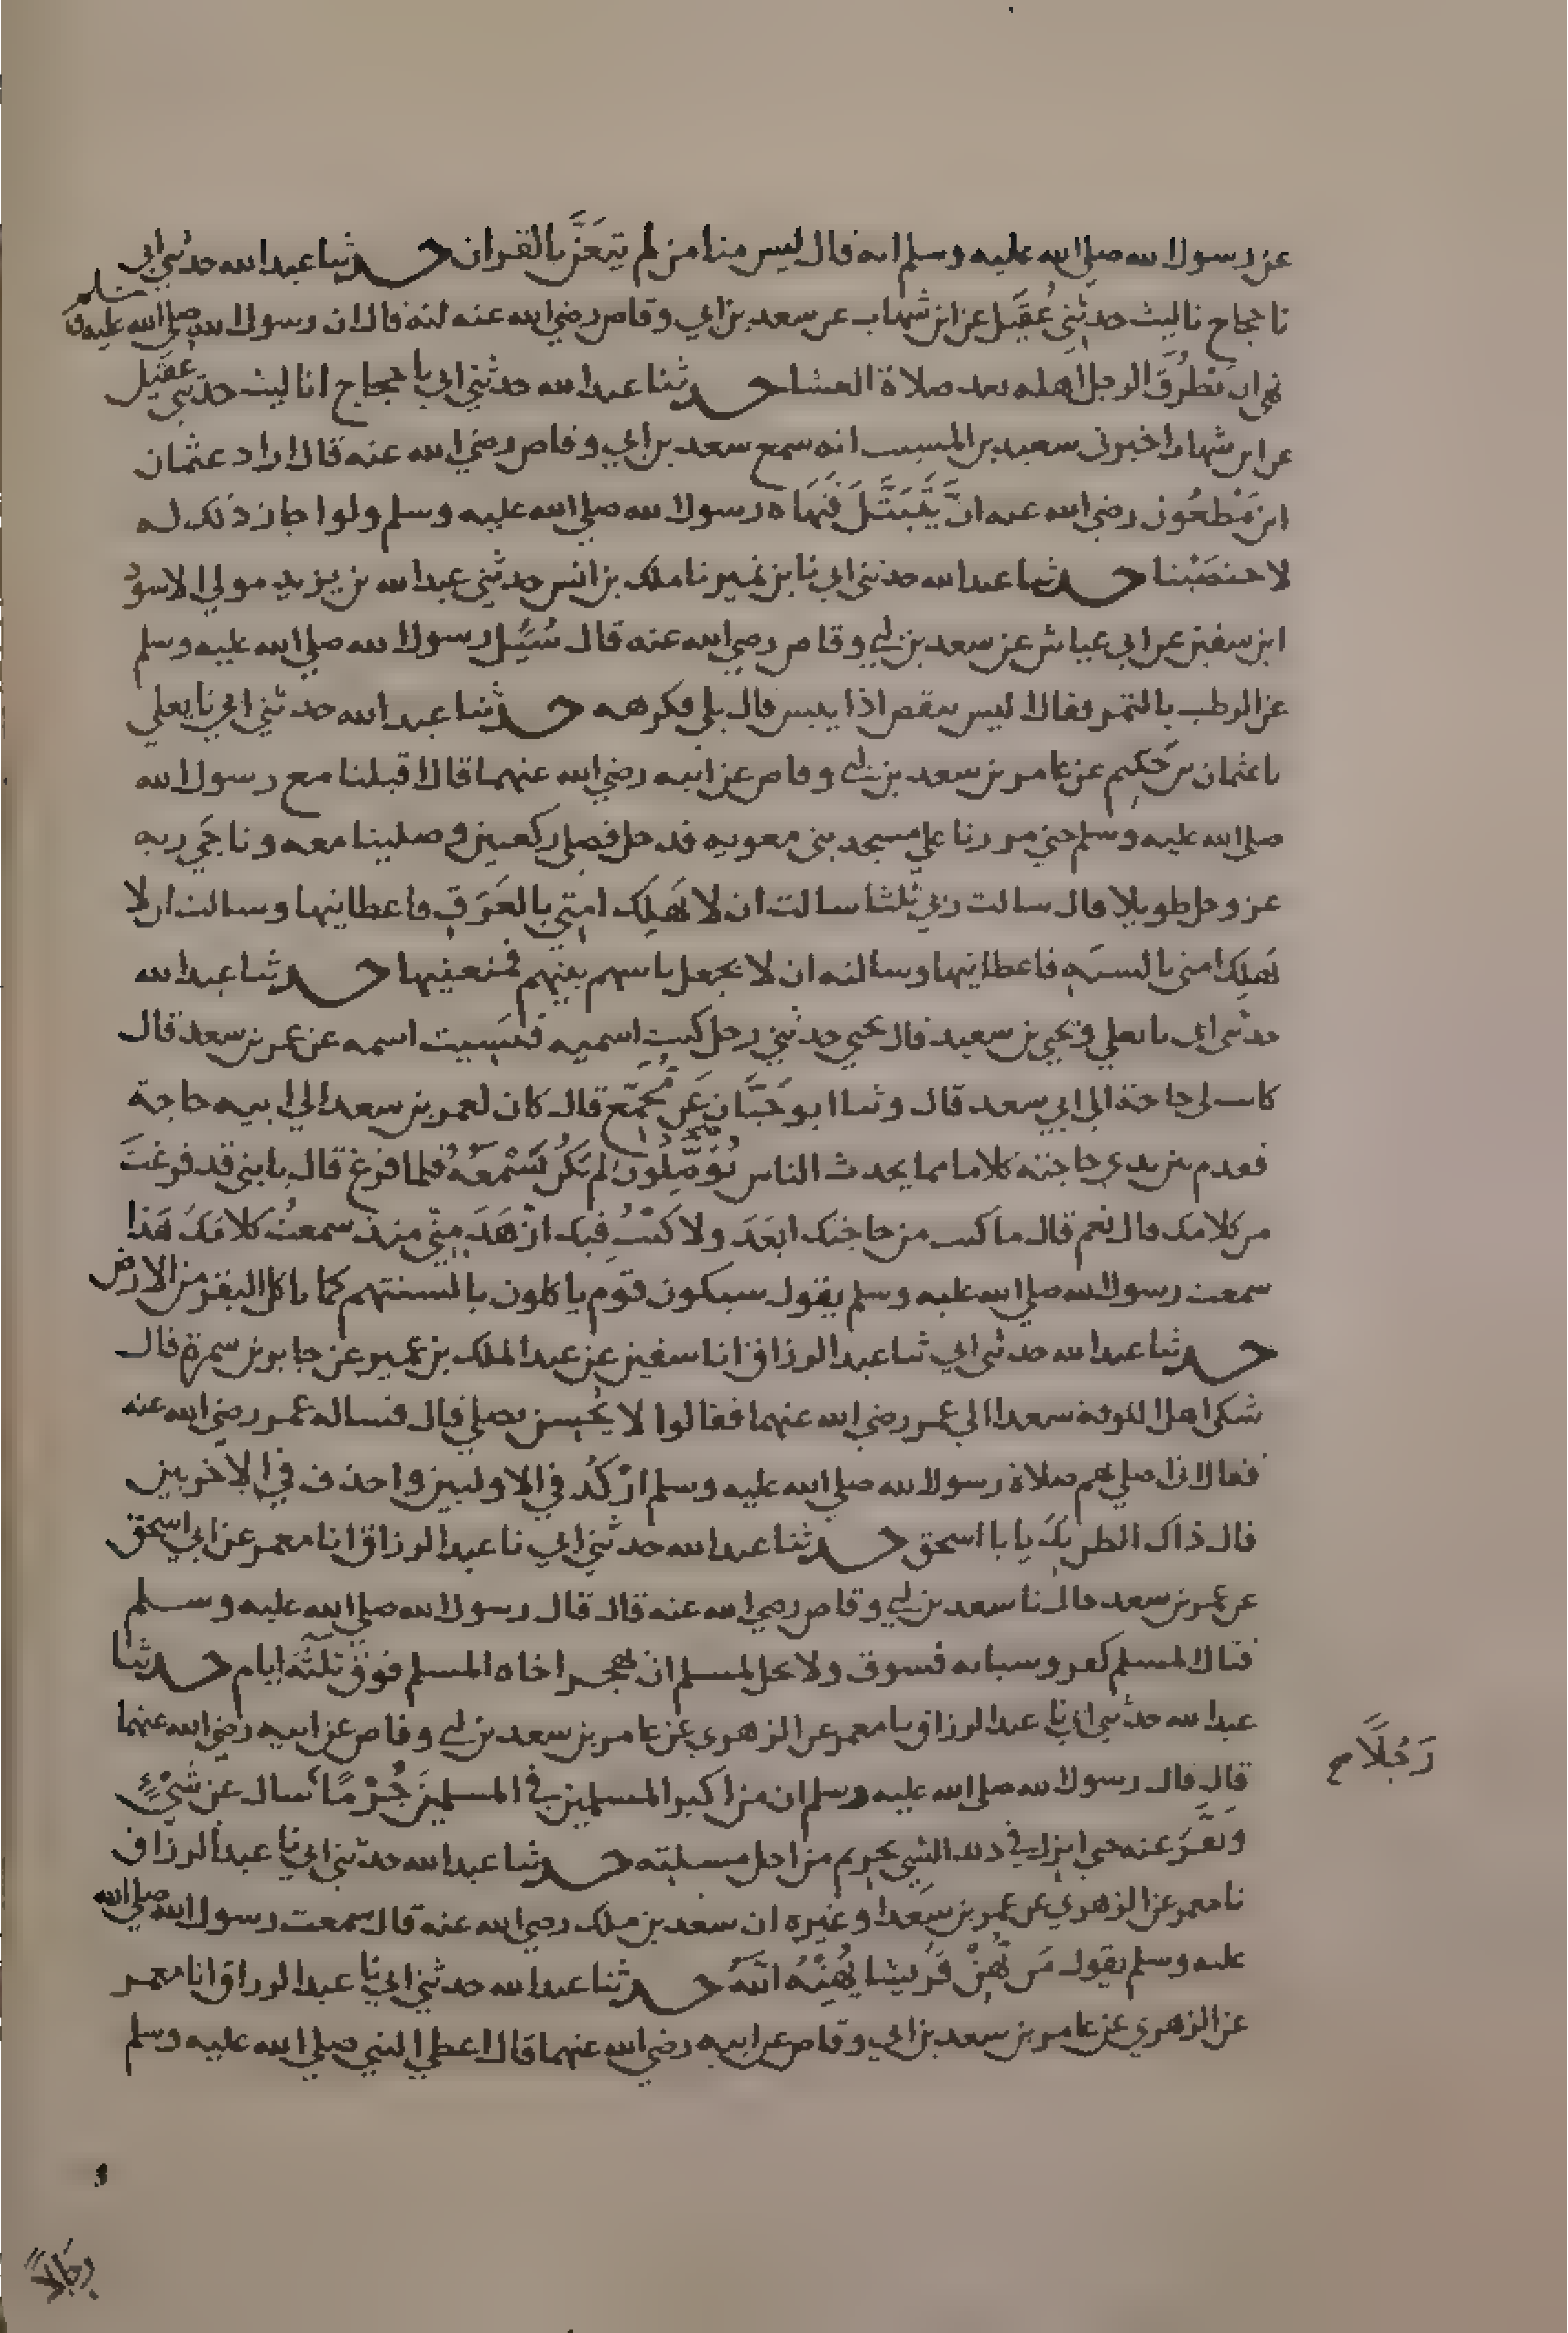 عن رسول الله صلى الله عليه وسلم انه قال ليس منا من لم يتغنَّ بالقران حدثنا عبد الله حدثني ابي
نا حجاج نا ليث حدثني عُقَيل عن ابن شهاب عن سعد بن ابي وقاص رضي الله عنه انه قال ان رسول الله صلى الله عليه وسلم
نهى ان يَطْرُقَ الرجل اهله بعد صلاة العشا حدثنا عبد الله حدثني ابي نا حجاج انا ليث حدثني عقيل
عن ابن شهاب اخبرني سعيد بن المسيب انه سمع سعد بن ابي وقاص رضي الله عنه قال اراد عثمان
ابن مَظْعُون رضي الله عنه انْ يَتَبَتَّلَ فَنَهَاه رسول الله صلى الله عليه وسلم ولو اجاز ذلك له
لاختصَيْنا حدثنا عبد الله حدثني ابي نا ابن نمير نا ملك بن انس حدثني عبد الله بن يزيد مولى الاسود
ابن سفين عن ابي عياش عن سعد بن ابي وقاص رضي الله عنه قال سُئِل رسول الله صلى الله عليه وسلم
عن الرطب بالتمر فقال اليس ينقص اذا يبس قال بلى فكرهه حدثنا عبد الله حدثني ابي نا يعلى
نا عثمان بن حَكِيم عن عامر بن سعد بن ابي وقاص عن ابيه رضي الله عنهما قال اقبلنا مع رسول الله
صلى الله عليه وسلم حتى مررنا على مسجد بني معويه فدخل فصلى ركعتين وصلينا معه وناجَى ربه
عز وجل طويلا قال سالت ربي ثلثا سالت ان لا يُهلِكَ امتي بالغَرَقِ فاعطانيها وسالت ان لا
يُهلِكَ امتي بالسنَه فاعطانيها وسالته ان لا يجعل باسهم بينهم فمنعنيها حدثنا عبد الله
حدثني ابي نا يعلى ويحيى بن سعيد قال يحيى حدثني رجل كنت اسميه فنَسِيت اسمه عن عمر بن سعد قال
كانت لي حاجة الى ابي سعد قال وثنا ابو حَيَّان عَن مُجَمّع قال كان لعمر بن سعد الى ابيه حاجة
فقدم بين يدي حاجته كلاما مما يحدث الناس يُوَصِّلُونَ لم يَكُن يَسْمَعُهُ فلما فرغ قال يا بني قد فرغتَ
من كلامك قال نعم قال ما كنت من حاجتك ابعَدَ ولا كُنْتُ فيك ازْهَدَ مِنّي منذ سمعتُ كلامَكَ هَذا
سمعت رسول الله صلى الله عليه وسلم يقول سيكون قَوم ياكلون بالسنتهم كما ياكل البقر من الارض
حدثنا عبد الله حدثني ابي ثنا عبد الرزاق انا سفين عن عبد الملك بن عمير عن جابر بن سمرة قال
شكى اهل الكوفة سعدا الى عمر رضي الله عنهما فقالوا لا يُحْسِن يصلي قال فساله عمر رضي الله عنه
فقال اني اصلي بهم صلاة رسول الله صلى الله عليه وسلم ارْكُدُ في الاوليين واحذف في الاخريين
قال ذاك الظن بِكَ يا با اسحق حدثنا عبد الله حدثني ابي نا عبد الرزاق انا معمر عن ابي اسحق
عن عمر بن سعد قال نا سعد بن ابي وقاص رضي الله عنه قال قال رسول الله صلى الله عليه وسلم
قتال المسلم كفر وسبابه فسوق ولا يحل لمسلم ان يهجر اخاه المسلم فوق ثلثة ايام حدثنا
عبد الله حدثني ابي نا عبد الرزاق نا معمر عن الزهري عن عامر بن سعد بن ابي وقاص عن ابيه رضي الله عنهما
قال قال رسول الله صلى الله عليه وسلم ان من اكبر المسلمين في المسلمين جُرْمًا سال عن شَيْءٍ
ونَقَّرَ عنه حتى انزل في ذلك الشي تحريم من اجل مسلته حدثنا عبد الله حدثني ابي نا عبد الرزاق
نا معمر عن الزهري عن عمر بن سَعد او غيره ان سعد بن ملك رضي الله عنه قال سمعت رسول الله صلى الله
عليه وسلم يقول مَن يُهِنْ قُرَيشا يُهِنْهُ اللَّهُ حدثنا عبد الله حدثني ابي نا عبد الرزاق انا معمر
عن الزهري عن عامر بن سعد بن ابي وقاص عن ابيه رضي الله عنهما قال اعطى النبي صلى الله عليه وسلم
رَجُلًا
رجالًا